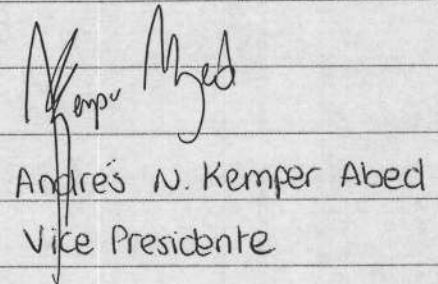 Kemper Abed
Andrés N. Kemper Abed
Vice Presidente